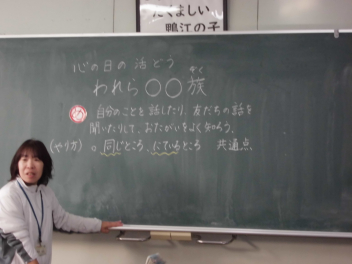 たくましい
鴨江の子
心の日の活どう
われら○○族
ぞく
自分のことを話したり、友だちの話を
聞いたりして、おたがいをよく知ろう。
(やり方) 。同じところ、にているところ 共通点